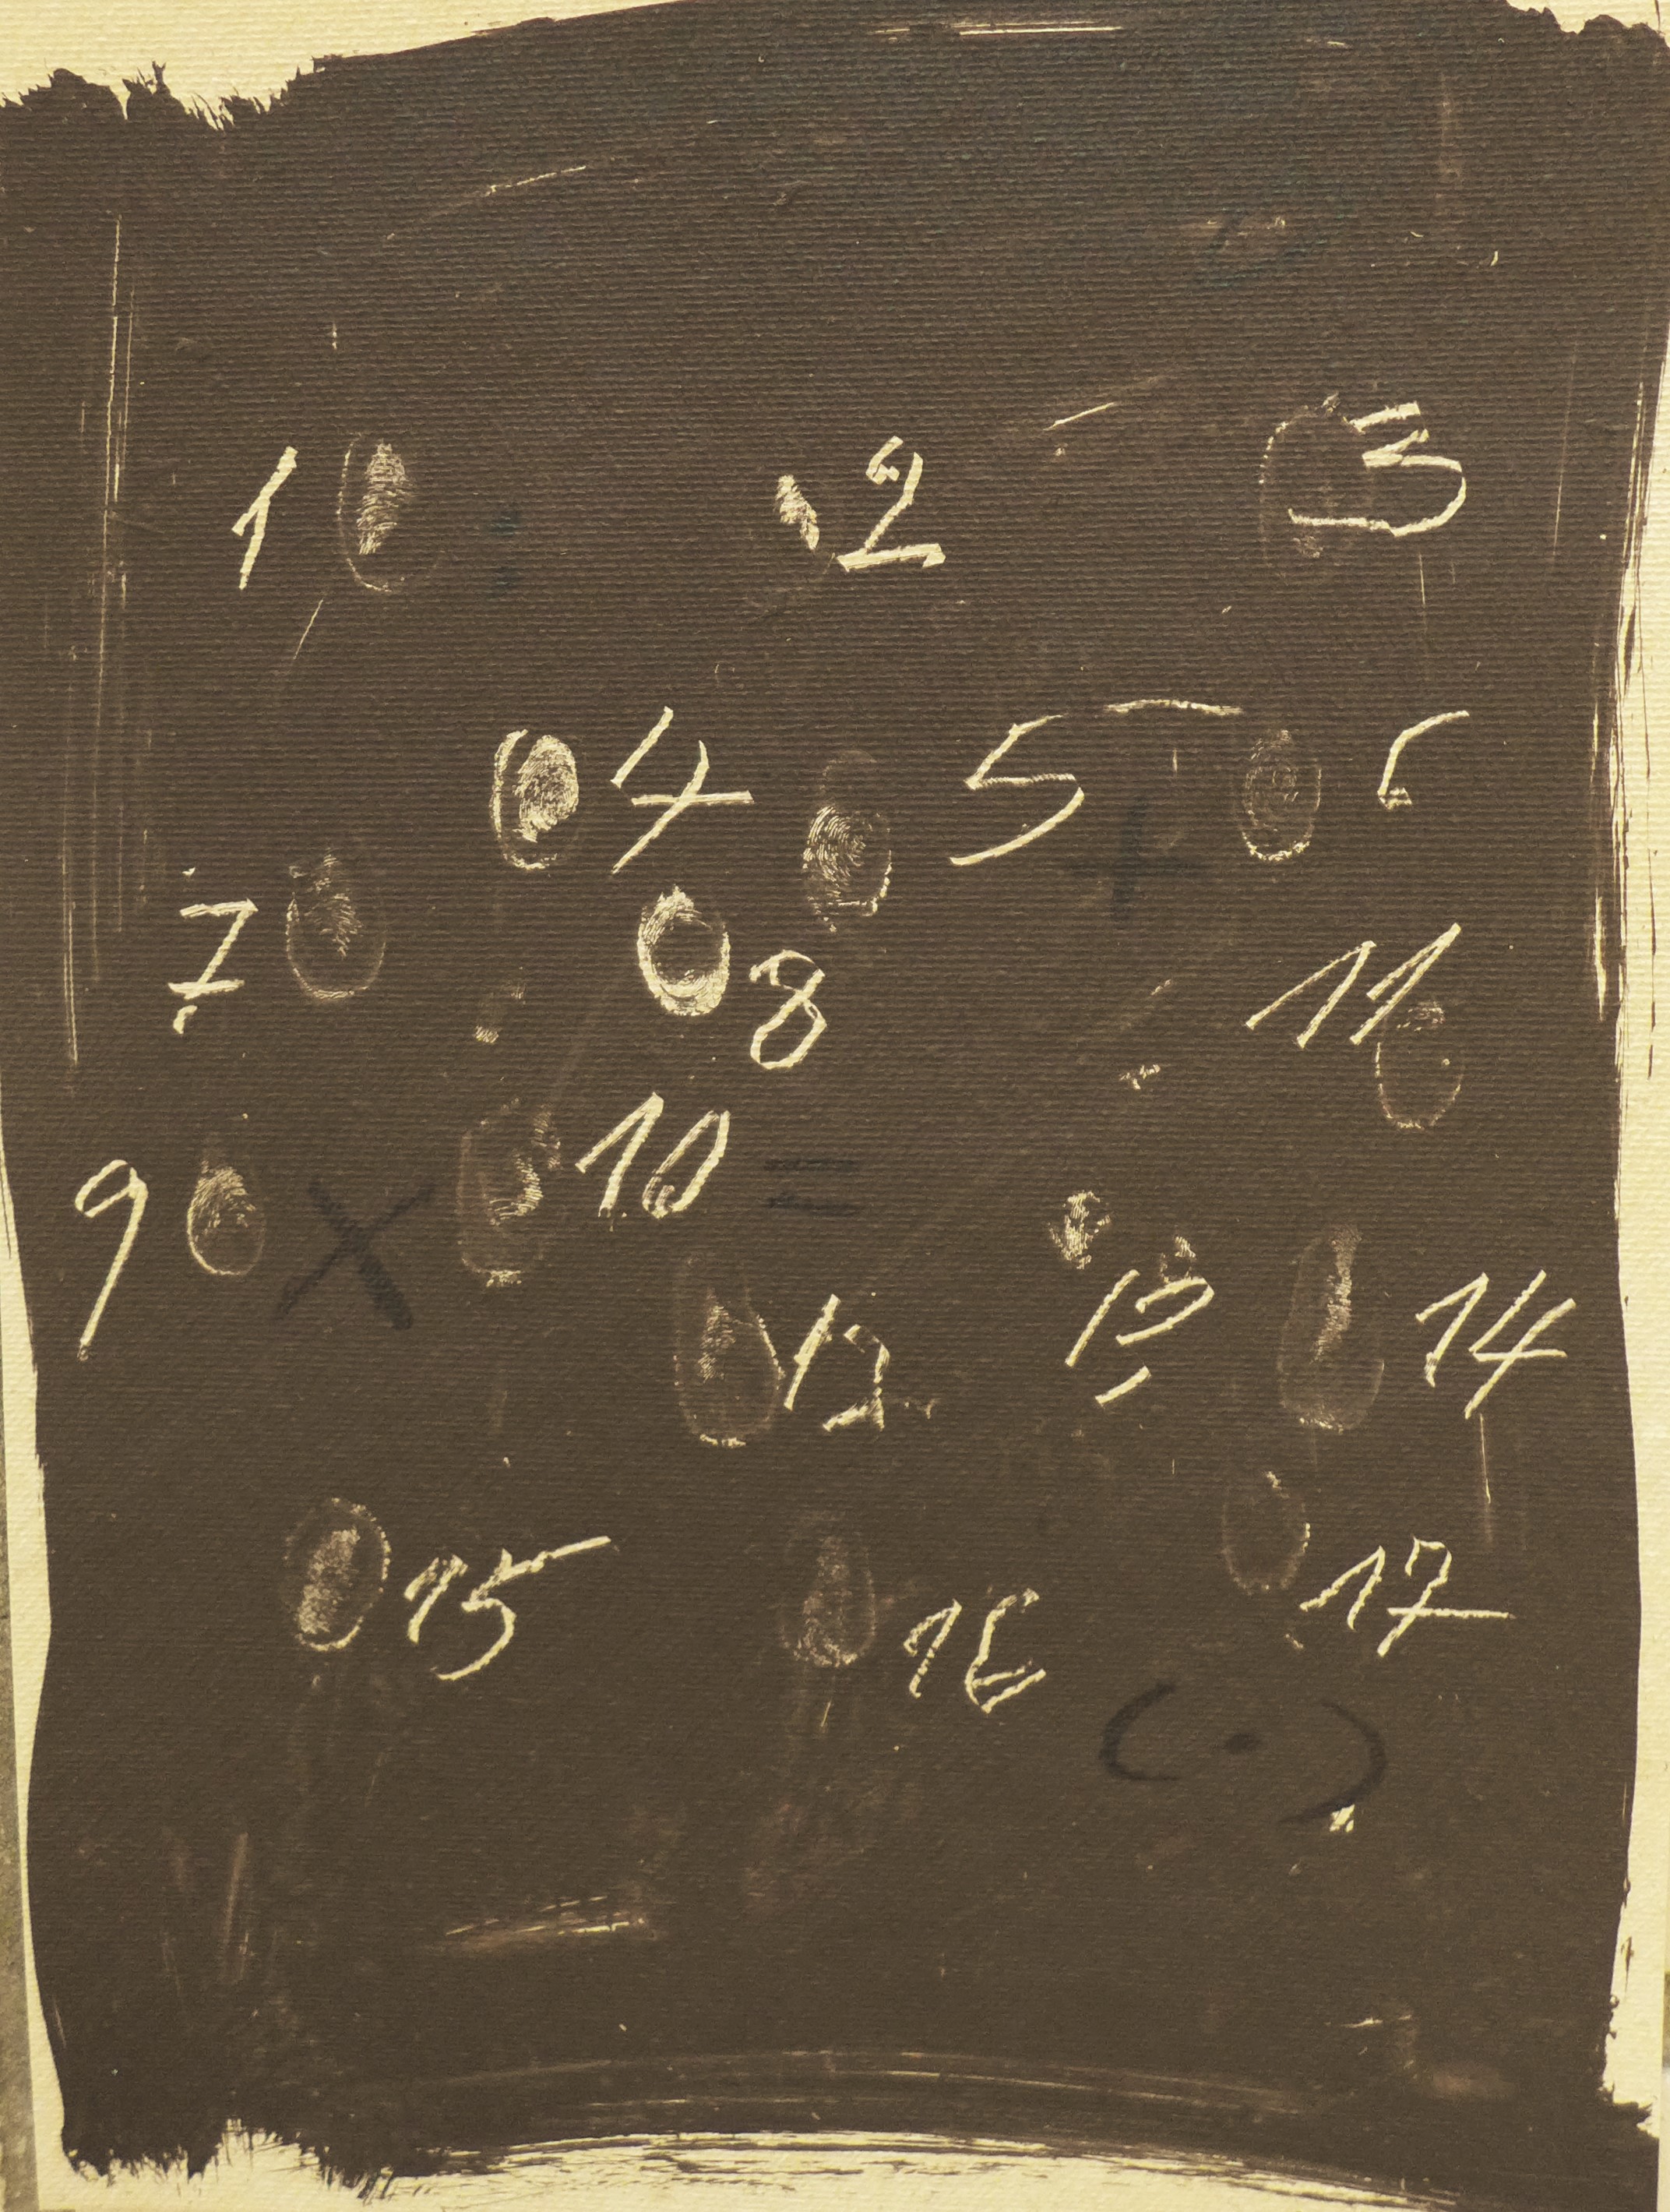 1 : 2 3
4 5 + 6
7 8 11
9 × 10 =
12 13 14
15 16 17
( · )